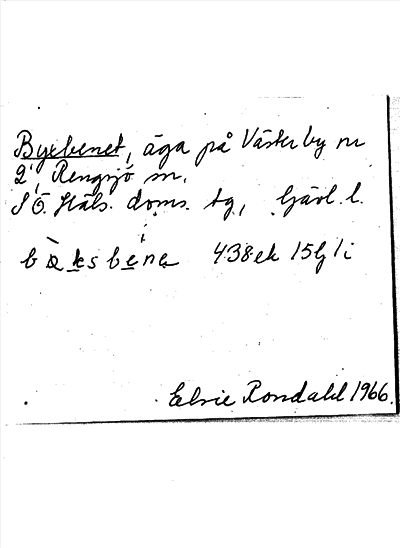 Byxbenet, äga på Västerby nr
2, Rengsjö sn.
S Ö. Häls. doms. tg, Gävl. l.
438 ek 15 G 1 i
Elsie Rondahl 1966.